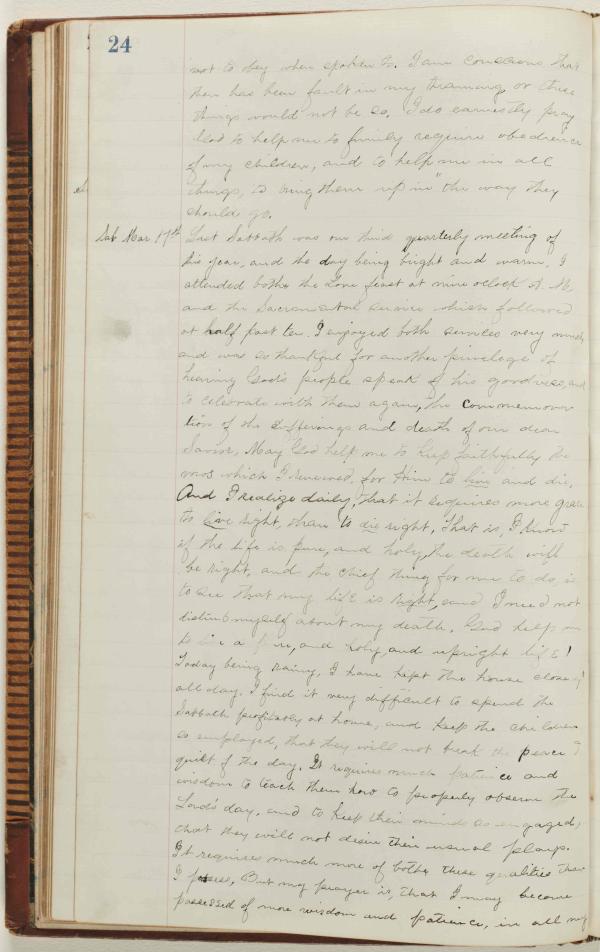 24
not to obey when spoken to. I am conscious that
there has been fault in my training or these
things would not be so. I do earnestly pray
God to help me to firmly require obedience
of my children, and to help me in all
things, to bring them up in "the way they
should go.
Sab Mar 17th Last Sabbath was our third quarterly meeting of
this year, and the day being bright and warm. I
attended both the Love feast at nine oclock A. M.
and the Sacramental service which followed
at half past ten. I enjoyed both services very much
and was so thankful for another privilege of
hearing God's people speak of his goodness, and
to celebrate with them again, the commemora
tion of the sufferings and death of our dear
Savior, May God help me to keep faithfully the
vows which I renewed, for Him to live and die,
And I realize daily, that it requires more grace
to live right, than to die right, that is, I know
if the life is pure, and holy, the death will
be right, and the chief thing for me to do, is
to see that my life is right, and I need not
disturb myself about my death. God help me
to live a pure, and holy, and upright life!
Today being rainy, I have kept the house closely
all day. I find it very difficult to spend the
Sabbath profitably at home, and keep the children
so employed, that they will not break the peace &
quiet of the day. It requires much patience and
wisdom to teach them how to properly observe the
Lord's day, and to keep their minds so engaged,
that they will not desire their usual plays.
It requires much more of both these qualities than
I possess, But my prayer is, that I may become
possessed of more wisdom and patience, in all my